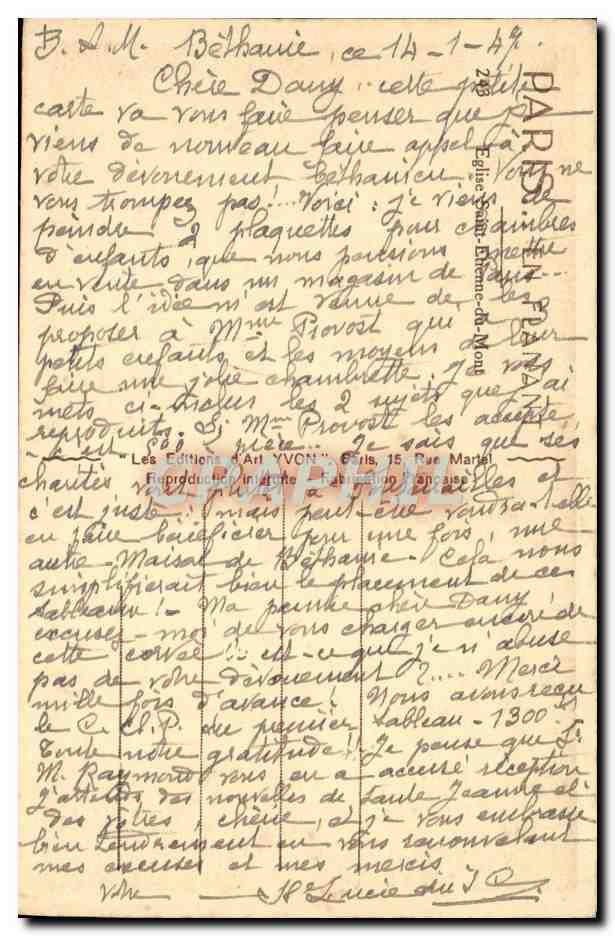 B. A. M. Béthanie, ce 14-1-47.
Chère Dany, cette petite
carte va vous faire penser que je
viens de nouveau faire appel à
votre dévouement béthanien. Vous ne
vous trompez pas!... Voici: je viens de
peindre 2 plaquettes pour chambres
d'enfants, que nous pensions mettre
en vente dans un magasin de
Puis l'idée m'est venue de les
proposer à Mme Provost qui a
petits enfants et les moyens de leur
faire une jolie chambrette. Je vous
mets ci-inclus les 2 sujets que j'ai
reproduits. Si Mme Provost les accepte,
c'est pièce. Je sais que ses
charités vont plutôt à et
c'est juste! mais peut-être voudra-t-elle
en faire bénéficier pour une fois, une
autre Maison de Béthanie. Cela nous
simplifierait bien le placement de ces
tableaux! - Ma pauvre chère Dany,
excusez-moi de vous charger encore de
cette corvée! est-ce que je n'abuse
pas de votre dévouement?.... Merci
mille fois d'avance! Nous avons reçu
le C. Ch. P. du premier tableau - 1300
Toute notre gratitude! Je pense que Sr
M. Raymond vous en a accusé réception
J'attends des nouvelles de tante Jeanne et
des vôtres, chérie, et je vous embrasse
bien tendrement en vous renouvelant
mes excuses et mes mercis.
Votre Sr Lucie du
PARIS... EN FLANANT
293 Eglise Saint-Etienne-du-Mont
"Les Editions d'Art YVON", Paris, 15, Rue Martel
Reproduction interdite - Fabrication Française
CPAPHIL